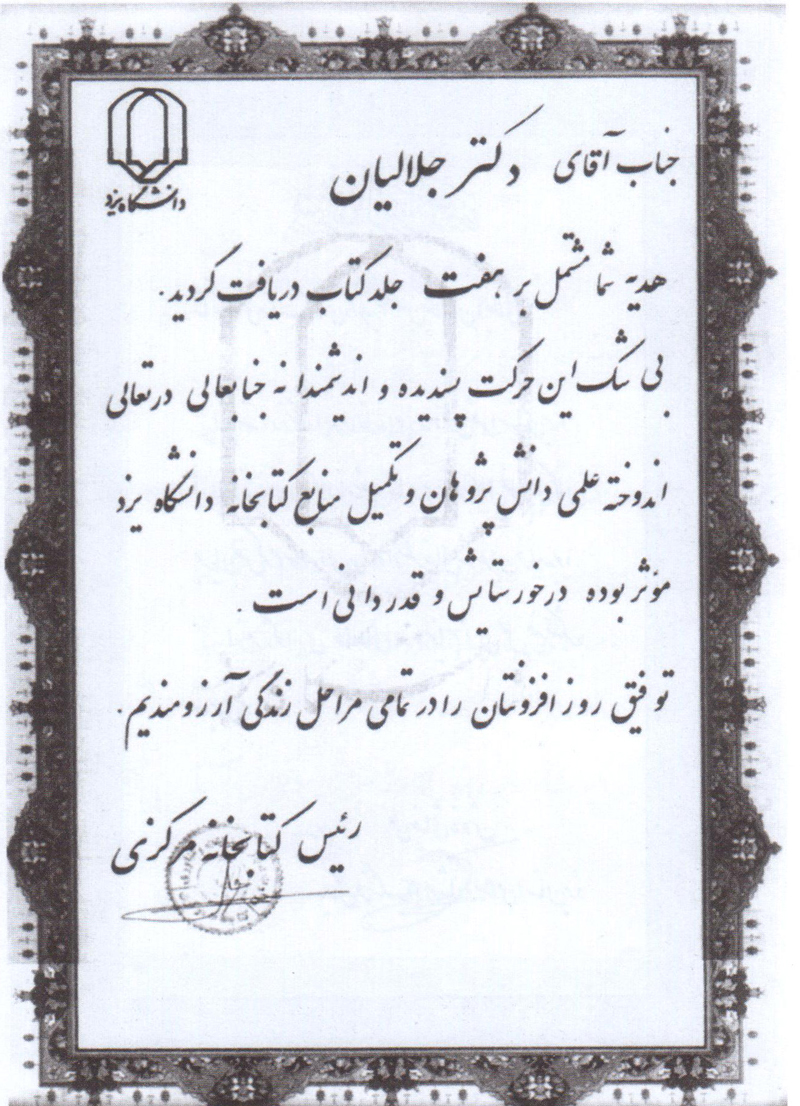 دانشگاه یزد
جناب آقای دکتر جلالیان
هدیه شما مشتمل بر هفت جلد کتاب دریافت گردید.
بی شک این حرکت پسندیده و اندیشمندانه جنابعالی در تعالی
اندوخته علمی دانش پژوهان و تکمیل منابع کتابخانه دانشگاه یزد
مؤثر بوده درخور ستایش و قدردانی است.
توفیق روز افزونتان را در تمامی مراحل زندگی آرزومندیم.
رئیس کتابخانه مرکزی